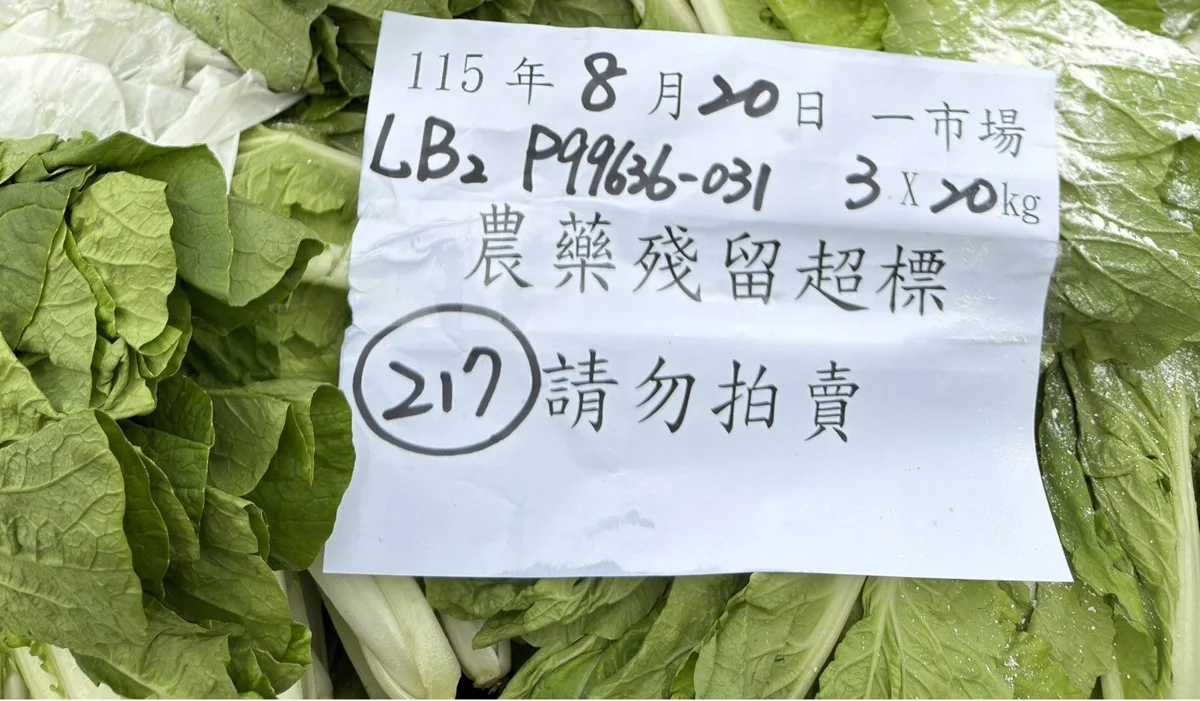 115 年 8 月 20 日 一市場
LB2 P99636-031 3 X 20 kg
農藥殘留超標
217 請勿拍賣